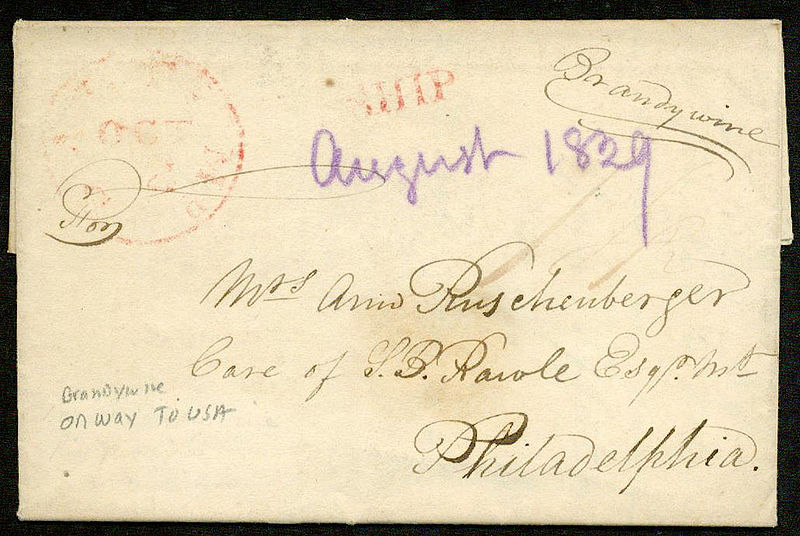 SHIP
Brandywine
OCT
August 1829
For
Mrs Ann Ruschenberger
Care of S.B. Rawle Esqr. Mt
Philadelphia.
Brandywine
on way To USA